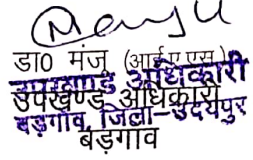 Manju
डा0 मंजू (आई.ए.एस.)
उपखण्ड अधिकारी
उपखण्ड अधिकारी
बड़गाँव, जिला-उदयपुर
बड़गाँव